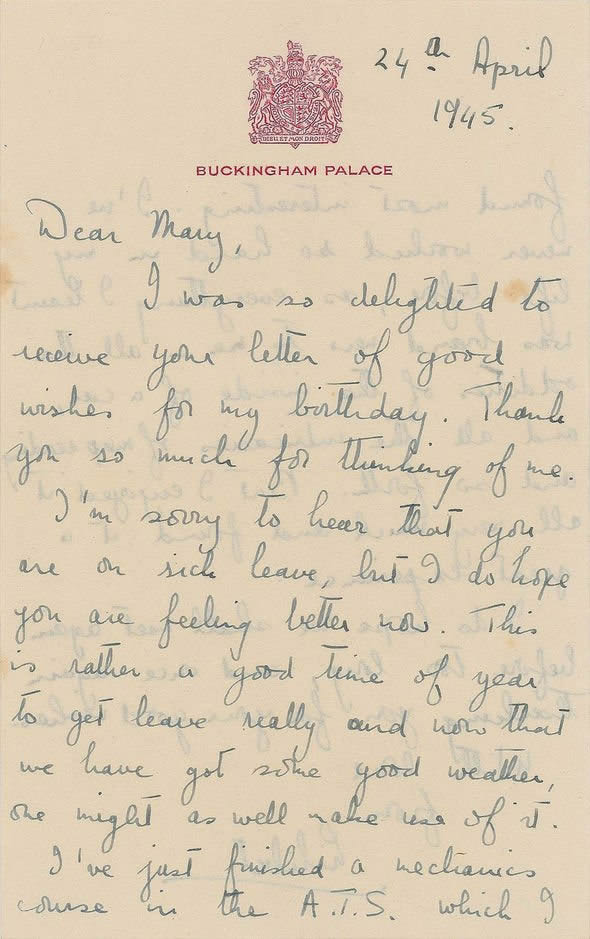 24th April
1945.
DIEU ET MON DROIT
BUCKINGHAM PALACE
Dear Mary,
I was so delighted to
receive your letter of good
wishes for my birthday. Thank
you so much for thinking of me.
I'm sorry to hear that you
are on sick leave, but I do hope
you are feeling better now. This
is rather a good time of year
to get leave really and now that
we have got some good weather,
one might as well make use of it.
I've just finished a mechanics
course in the A.T.S. which I